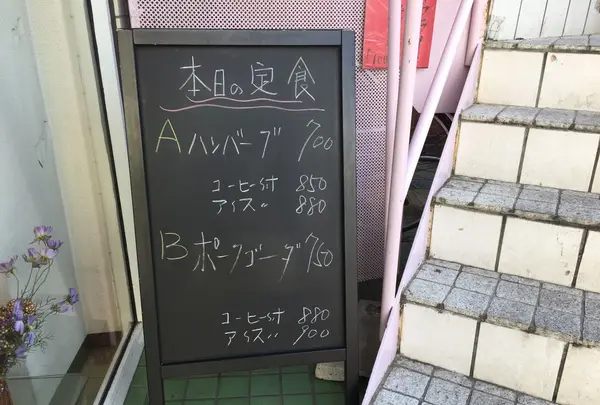 本日の定食
A ハンバーグ 700
コーヒー付 850
アイス 〃 880
B ポークソーダ 750
コーヒー付 880
アイス 〃 900